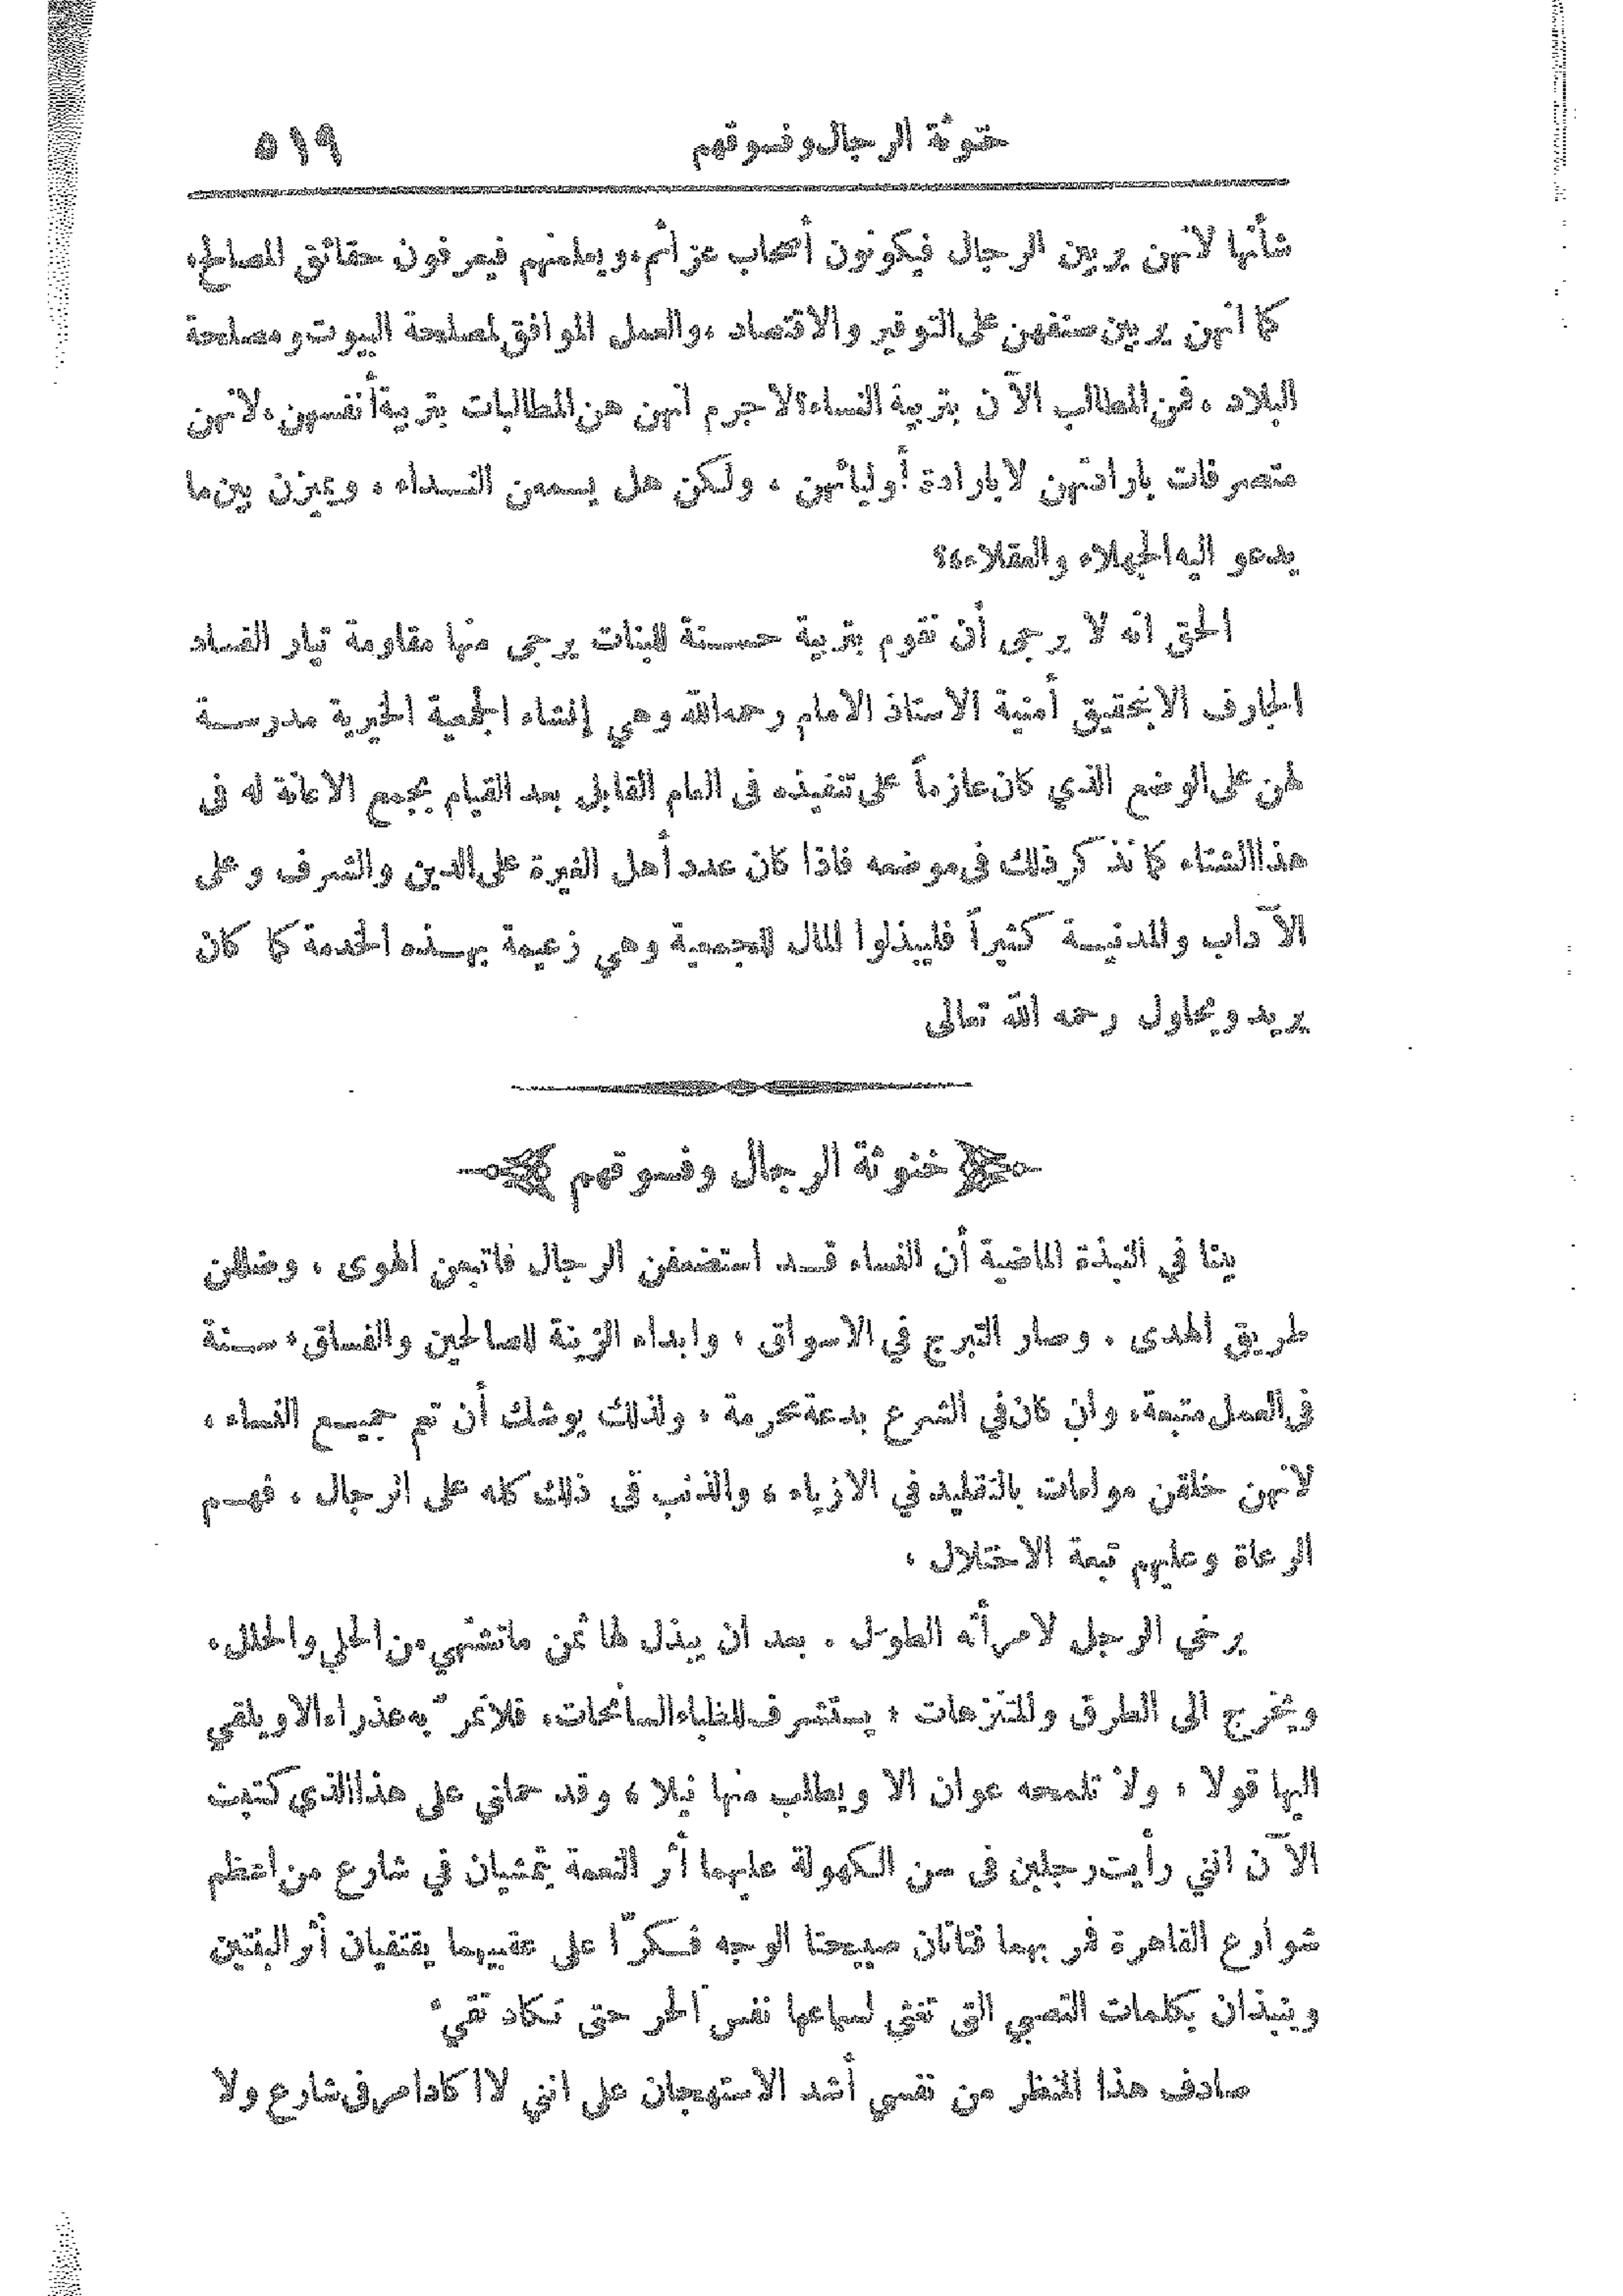 خنوثة الرجال وفسوقهم ٥١٩
شأنها لانهن يربين الرجال فيكونون أصحاب عزائم، ويعلمنهم فيعرفون حقائق المصالح،
كما انهن يربين صنفهن على التوفير والاقتصاد، والعمل الموافق لمصلحة البيوت ومصلحة
البلاد، فمن المطالب الآن بتربية النساء؟ لاجرم انهن هن المطالبات بتربية أنفسهن، لانهن
متصرفات بارادتهن لا بارادة أوليائهن، ولكن هل يسمعن النداء، ويميزن بين ما
يدعو اليه الجهلاء والعقلاء،؟
الحق انه لا يرجى أن تقوم بتربية حسنة للبنات يرجى منها مقاومة تيار الفساد
الجارف الا بتحقيق أمنية الاستاذ الامام رحمه الله وهي إنشاء الجمعية الخيرية مدرسة
لهن على الوضع الذي كان عازماً على تنفيذه في العام القابل بعد القيام بجمع الاعانة له في
هذا الشتاء كما نذكر ذلك في موضعه فاذا كان عدد أهل الغيرة على الدين والشرف وعلى
الآداب والمدنية كثيراً فليبذلوا المال للجمعية وهي زعيمة بهذه الخدمة كما كان
يريد ويحاول رحمه الله تعالى
خنوثة الرجال وفسوقهم
بينا في النبذة الماضية أن النساء قد استضعفن الرجال فاتبعن الهوى، وضللن
طريق الهدى. وصار التبرج في الاسواق، وابداء الزينة للصالحين والفساق، سنة
في العمل متبعة، وان كان في الشرع بدعة محرمة، ولذلك يوشك أن تعم جميع النساء،
لانهن خلقن مولعات بالتقليد في الازياء، والذنب في ذلك كله على الرجال، فهم
الرعاة وعليهم تبعة الاختلال،
يرخي الرجل لامرأته الطول. بعد ان يبذل لها ثمن ما تشتهي من الحلي والحلل،
ويخرج الى الطرق والمتنزهات، يستشرف للظباء السانحات، فلا تمرّ به عذراء الا ويلقي
اليها قولا، ولا تلمحه عوان الا ويطلب منها نيلا، وقد حملني على هذا الذي كتبت
الآن انني رأيت رجلين في سن الكهولة عليهما أثر النعمة يتمشيان في شارع من اعظم
شوارع القاهرة فمر بهما فتاتان صبيحتا الوجه فكرّا على عقبيهما يقتفيان أثر البنتين
وينبذان بكلمات التصبي التي تغثي لسماعها نفس الحر حتى تكاد تقيء
صادف هذا المنظر من نفسي أشد الاستهجان على انني لا اكاد امر في شارع ولا